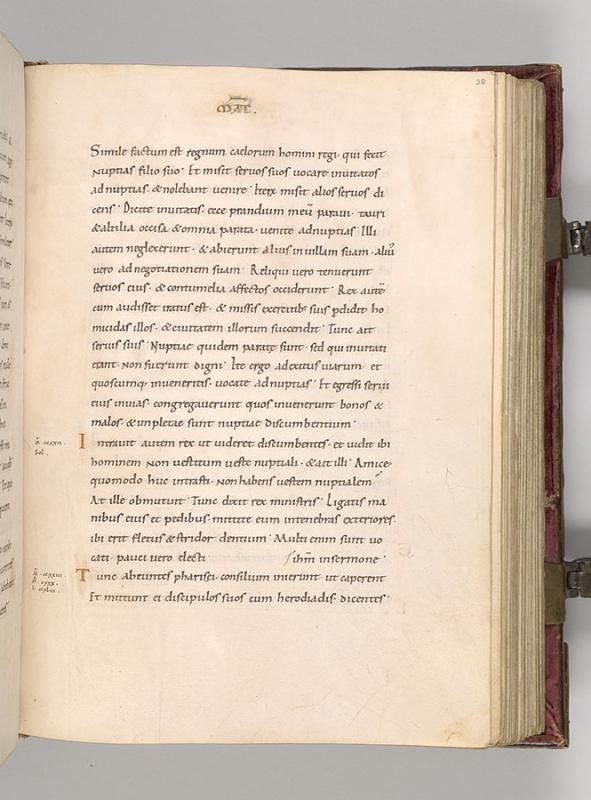 38
MAT.
Simile factum est regnum caelorum homini regi· qui fecit
nuptias filio suo· Et misit seruos suos uocare inuitatos
ad nuptias· & nolebant uenire· Iterū misit alios seruos di
cens· Dicite inuitatis· ecce prandium meū paraui· tauri
& altilia occisa· & omnia parata· uenite ad nuptias· Illi
autem neglexerunt· & abierunt alius in uillam suam· aliu᷒
uero ad negotiationem suam· Reliqui uero tenuerunt
seruos eius· & contumelia affectos occiderunt· Rex autē
cum audisset iratus est· & missis exercitib; suis pdidit ho
micidas illos· & ciuitatem illorum succendit· Tunc ait
seruis suis· Nuptiae quidem paratę sunt· sed qui inuitati
erant· non fuerunt digni· Ite ergo ad exitus uiarum· et
quoscumq; inueneritis· uocate ad nuptias· Et egressi serui
eius in uias· congregauerunt quos inuenerunt bonos &
malos· & impletae sunt nuptiae discumbentium·
Intrauit autem rex ut uideret discumbentes· et uidit ibi
hominem non uestitum ueste nuptiali· & ait illi· Amice
quomodo huc intrasti· non habens uestem nuptialem·
At ille obmutuit· Tunc dixit rex ministris· Ligatis ma
nibus eius et pedibus· mittite eum in tenebras exteriores·
ibi erit fletus & stridor dentium· Multi enim sunt uo
cati· pauci uero electi ihm in sermone·
Tunc abeuntes pharisei· consilium inierunt ut caperent
Et mittunt ei discipulos suos cum herodiadis· dicentes·